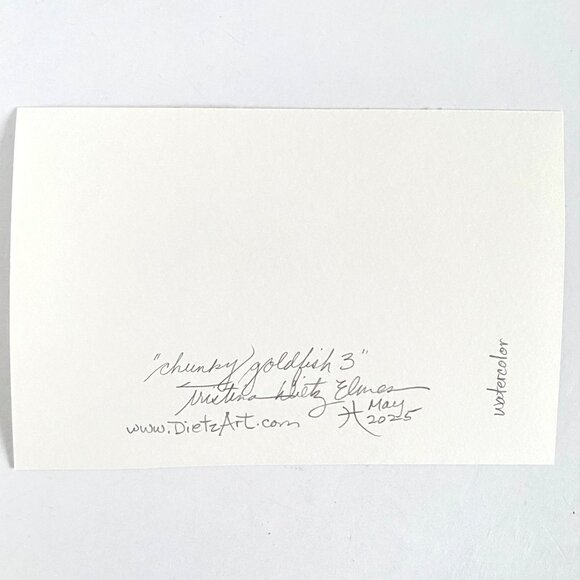 "chunky goldfish 3"
Tristina Dietz Elmes
www.DietzArt.com
May
2025
watercolor